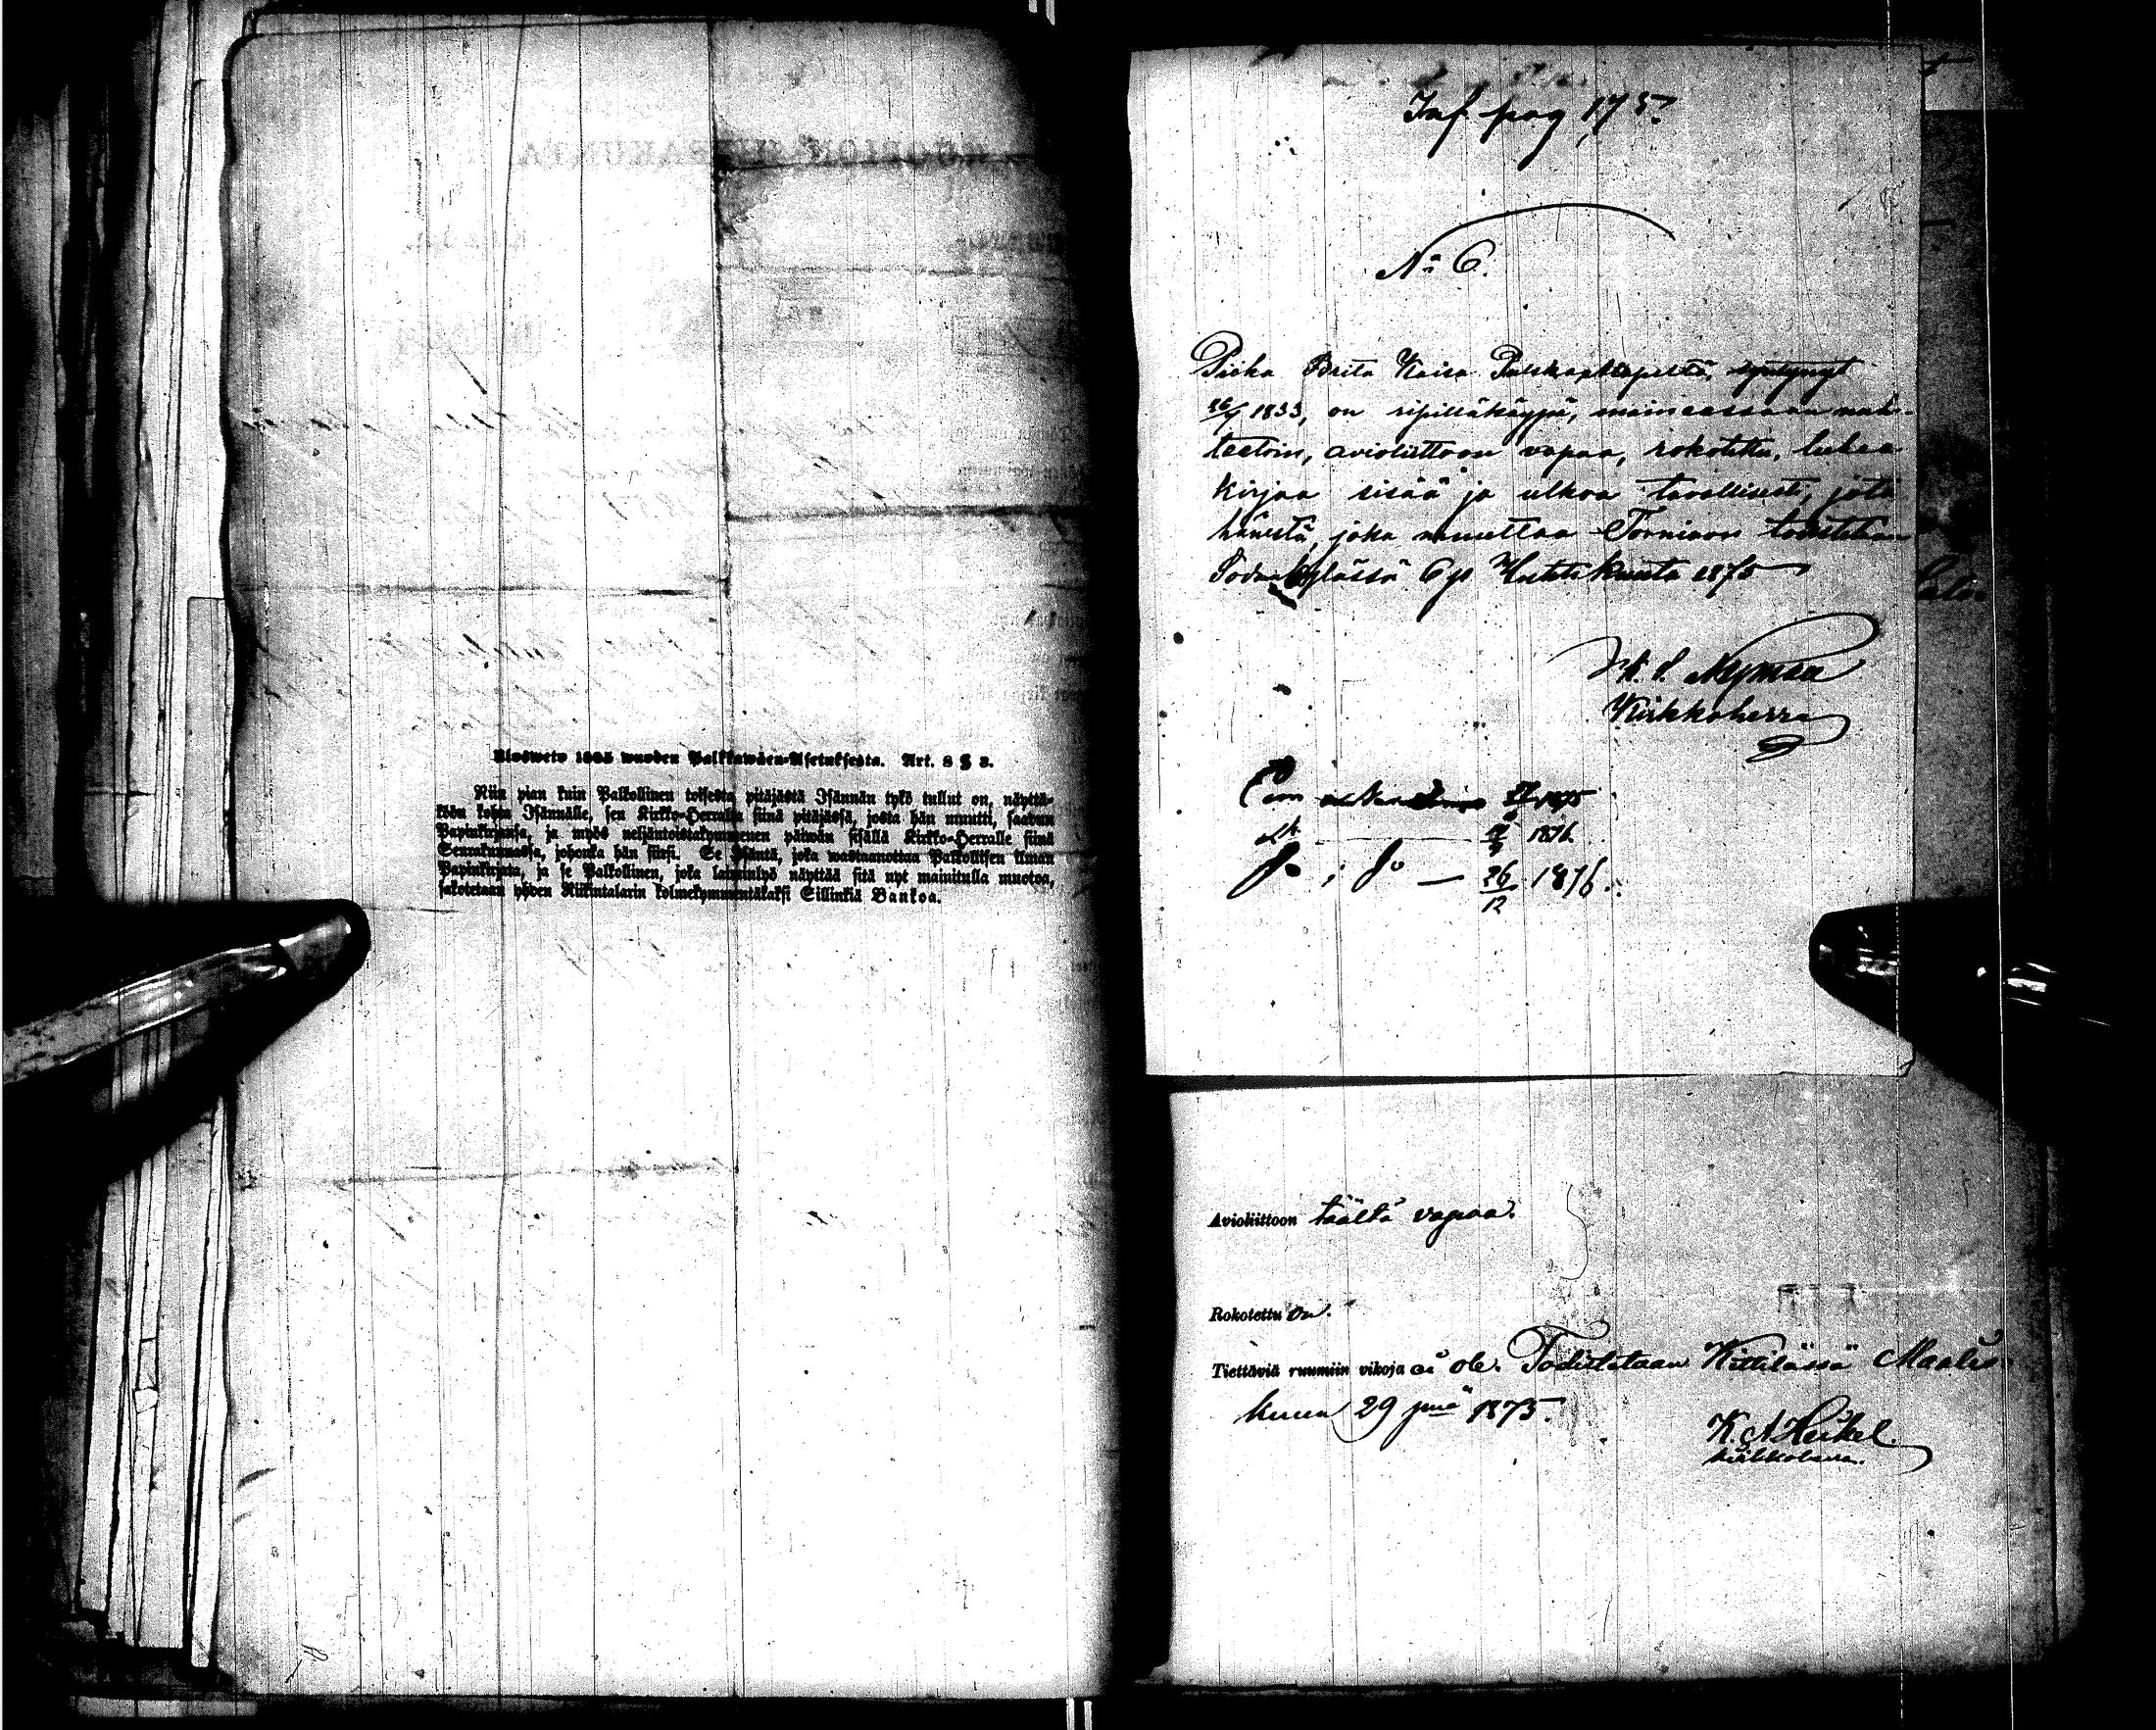 Uloswето 1805 wuoden Palkkawäen-Asetuksesta. Art. 8 § 3.
Niin pian kuin Palkollinen toisesta pitäjästä Isännän tykö tullut on, näyttä-
köön kohta Isännälle, sen Kirkko-Herralta siinä pitäjässä, josta hän muutti, saadun
Papinkirjansa, ja myös neljäntoistakymmenen päiwän sisällä Kirkko-Herralle siinä
Seurakunnassa, johonka hän siirsi. Se Isäntä, joka wastaanottaa Palkollisen ilman
Papinkirjata, ja se Palkollinen, joka laiminlyö näyttää sitä nyt mainitulla muotoa,
sakotetaan yhden Riikintalarin kolmekymmentäkaksi Sillinkiä Bankoa.
Inf. pag 175.
No 6.
Piika Brita Kaisa syntynyt
1833, on ripilläkäypä, maineessaan nuh-
teetoin, avioliittoon vapaa, rokotettu, lukee
kirjaa sisää ja ulkoa tavallisesti, jota
hänestä, joka muuttaa Tornioon todistetaan
Sodankylässä 6 p. Huhtikuuta 1875
Nyman
Kirkkoherra
1875
1876
26/12 1876.
Avioliittoon täältä vapaa.
Rokotettu on.
Tiettäviä ruumiin vikoja ei ole. Todistetaan Kittilässä Maalis
kuun 29 pnä 1875.
K. A Heikel.
kirkkoherra.